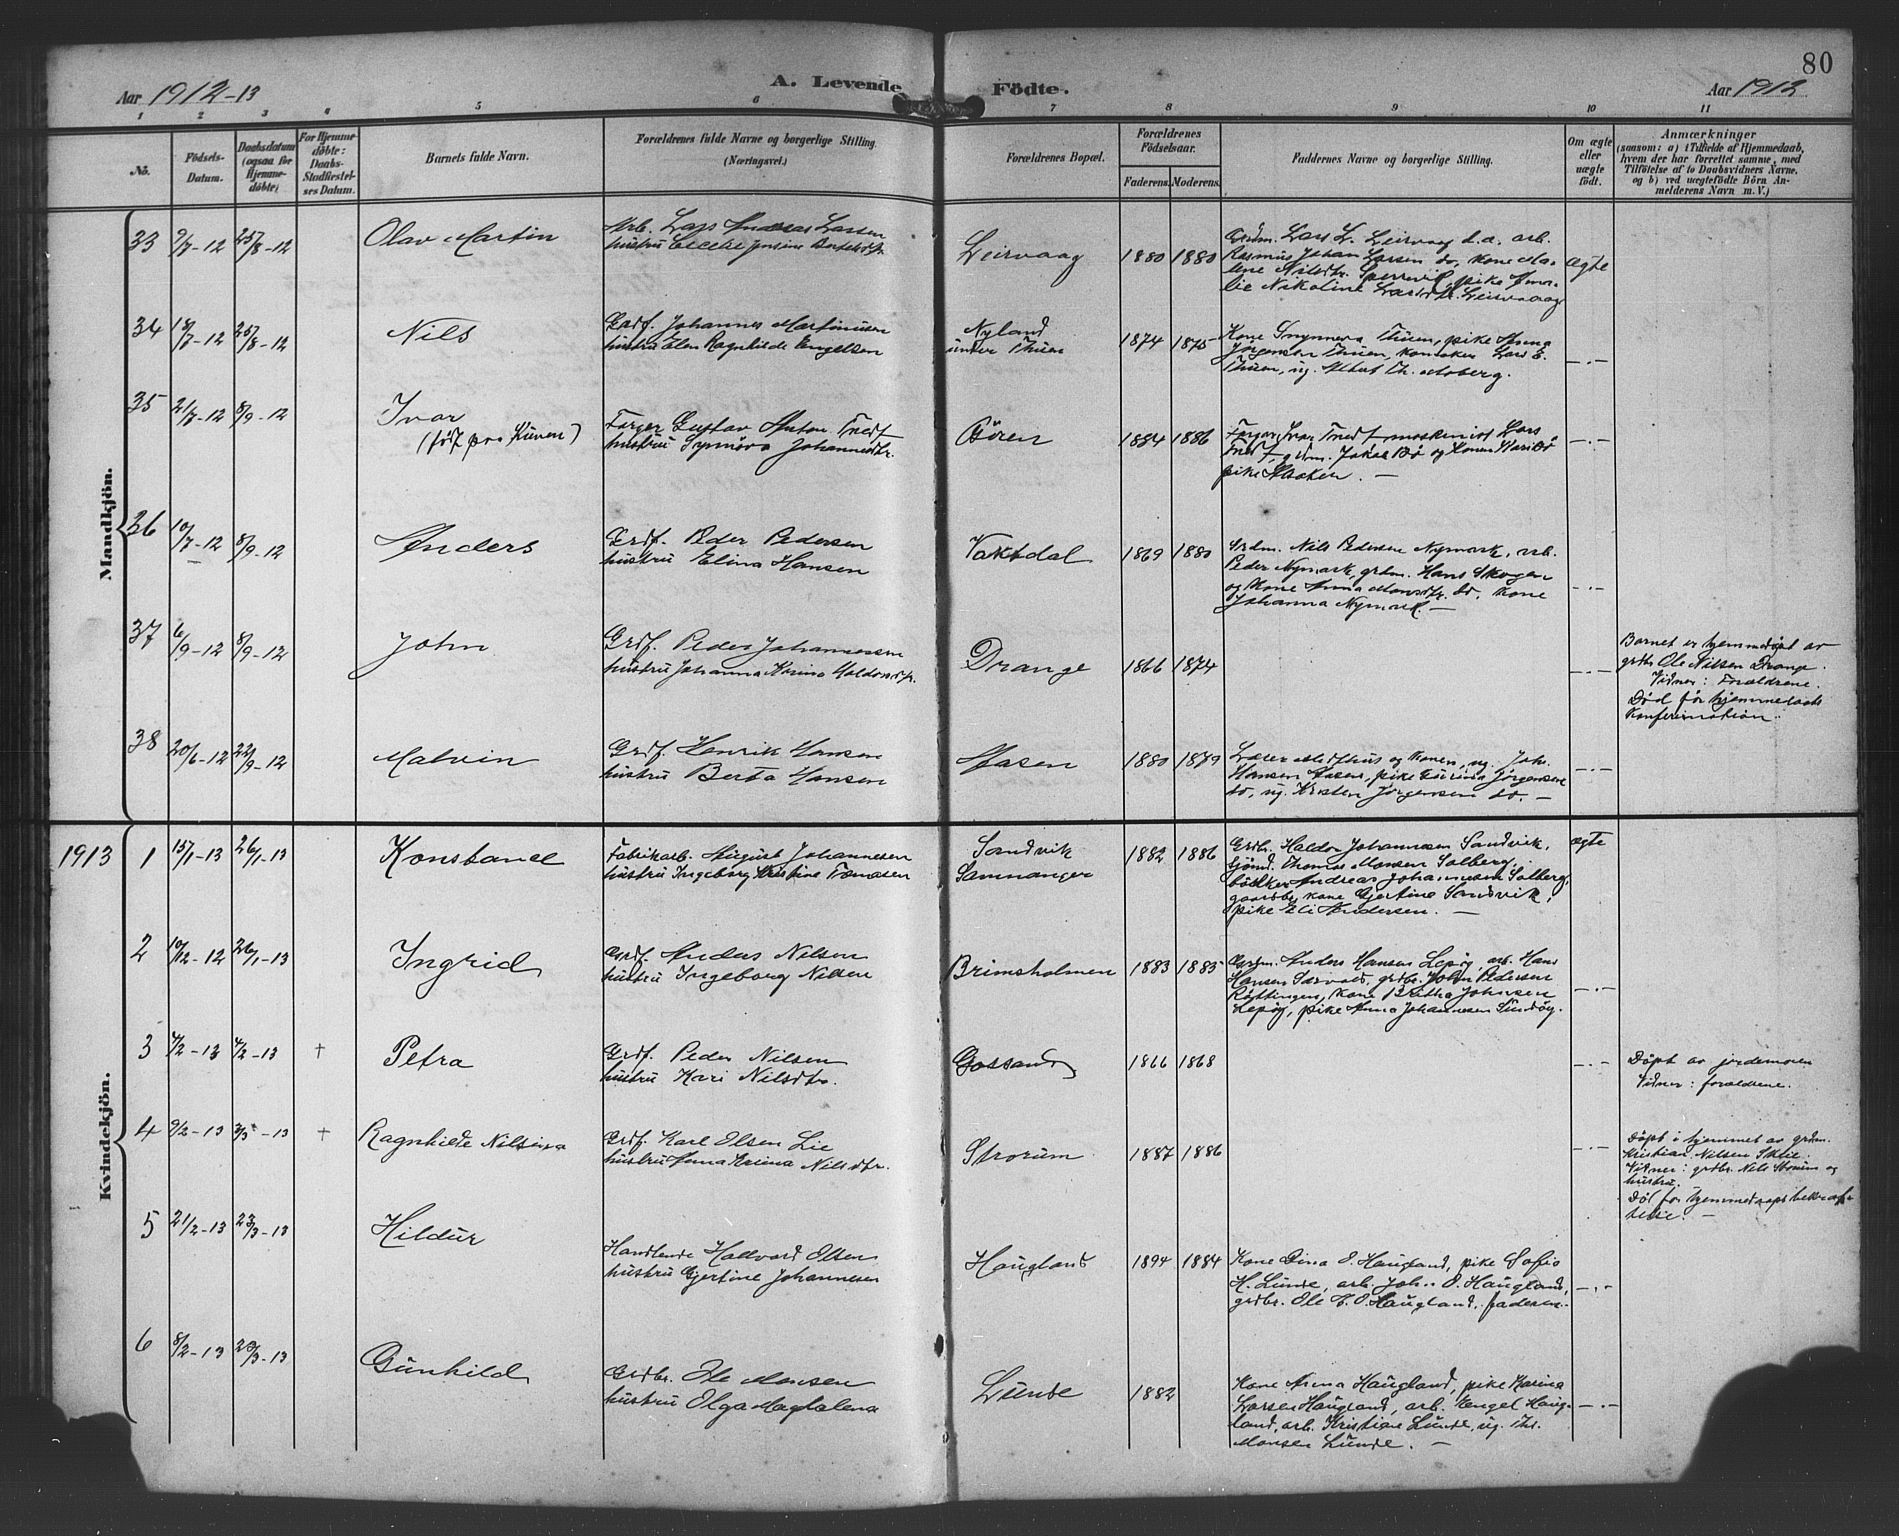 80
Aar 1912-13
A. Levende
Födte.
Aar 1913
1 2 3 4 5 6 7 8 9 10 11
No.
Födsels-Datum.
Daabsdatum (ogsaa for Hjemmedöbte)
For Hjemmedöbte: Daabs-Stadfæstelses Datum.
Barnets fulde Navn.
Forældrenes fulde Navne og borgerlige Stilling.
(Næringsvei.)
Forældrenes Bopæl.
Forældrenes Födselsaar.
Faderens. Moderens.
Faddernes Navne og borgerlige Stilling.
Om ægte eller uægte födt.
Anmærkninger
(saasom: a) i Tilfælde af Hjemmedaab, hvem der har forrettet samme, med Tilföielse af to Daabsvidners Navne, og b) ved uægtefödte Börn Anmelderens Navn m. V.)
Mandkjön.
33 9/7-12 25/8-12 Olav Martin
Arb. Lars Andreas Larsen
hustru
Leirvaag 1880 1880
Grdm. Lars L. Leirvaag s.a. arb.
Rasmus Johan Larsen do, kone Ma-
lene Nilsdtr. pike
lie Nikoline Larsdtr. Leirvaag
ægte
34 18/7-12 25/8-12 Nils
Johannes Martinusen
hustru Elen Ragnhilde Engelsen
Nyland
under Thuen
1874 1875
Kone Synneva Thuen, pike Anna
Jørgensen Thuen, Lars E.
Thuen, ug. Albert Th. Moberg.
35 21/7-12 8/9-12 Ivar
Farger Gustav Anton
hustru Synnøva Johannesdtr.
Øören 1884 1886
Farger Ivar maskinist Lars
grdm. Jakob Bø og konen Kari Bø
pike
36 10/7-12 8/9-12 Anders
Grdf. Peder Pedersen
hustru Elina Hansen
Vaksdal 1869 1880
Grdm. Nils Pedersen Nymark, arb.
Peder Nymark, grdm. Hans Skogen
og kone Anna Monsdtr. do, kone
Johanna Nymark.
37 6/9-12 8/9-12 John
Grdf. Peder Johannessen
hustru Johanna Karina Haldorsdtr.
Drange 1866 1874
Barnet er hjemmedøpt av
grdbr. Ole Nilsen Drange.
Vidner: Forældrene.
Død før hjemmedaabs
Konfirmation.
38 20/6-12 22/9-12 Malvin
Grdf. Henrik Hansen
hustru Berta Hansen
Aasen 1880 1879
Lærer og konen, ug. Joh.
Hansen Aasen, pike Gurina Jørgensen
do, ug. Kristen Jørgensen do.
Kvindekjön.
1913 1 15/1-13 26/1-13 Konstance
Fabrikarb. August Johannesen
hustru Ingeborg Kristine Tomasen
Sandvik
Samnanger
1882 1886
Grdb. Haldor Johannesen Sandvik,
sjömd. Thomas Monsen Solberg,
bödker Andreas Johannesen Solberg,
gaardbr. kone Gjertine Sandvik,
pike Eli Andersen.
ægte
2 10/12-12 26/1-13 Ingrid
Grdf. Anders Nilsen
hustru Ingeborg Nilsen
Brimsholmen 1883 1885
Grdm. Anders Hansen Lepöy, arb. Hans
Hansen grdbr. John Pedersen
Röttingen, kone Britha Johnsen
Lepöy, pike Anna Johannesen Sundöy.
3 4/2-13 4/2-13 † Petra
Grdf. Peder Nilsen
hustru Kari Nilsdtr.
Gaassand 1866 1868
Döpt av jordemoren
Vidner: forældrene.
4 9/2-13 3/3-13 † Ragnhilde Nilsina
Grdf. Karl Olsen Lie
hustru Anna Nilsdtr.
Strorum 1887 1886
Döpt i hjemmet av grdm.
Kristian Nilsen
Vidner: grdbr. Nils Strorum og
hustru.
Död for hjemmedaapsbekræf-
telse.
5 21/2-13 23/3-13 Hildur
Handlende Hallvard Olsen
hustru Gjertine Johannesen
Haugland 1894 1884
Kone Dina O. Haugland, pike Sofie
H. Lunde, arb. Joh. O. Haugland,
grdbr. Ole K. O. Haugland, faderen.
6 8/2-13 23/3-13 Gunhild
Grdbr. Ole Monsen
hustru Olga Magdalena
Lunde 1882
Kone Anna Haugland, pike Karina
Larsen Haugland, arb. Engel Haug-
land, arb. Kristian Lunde, ug. Th.
Monsen Lunde.